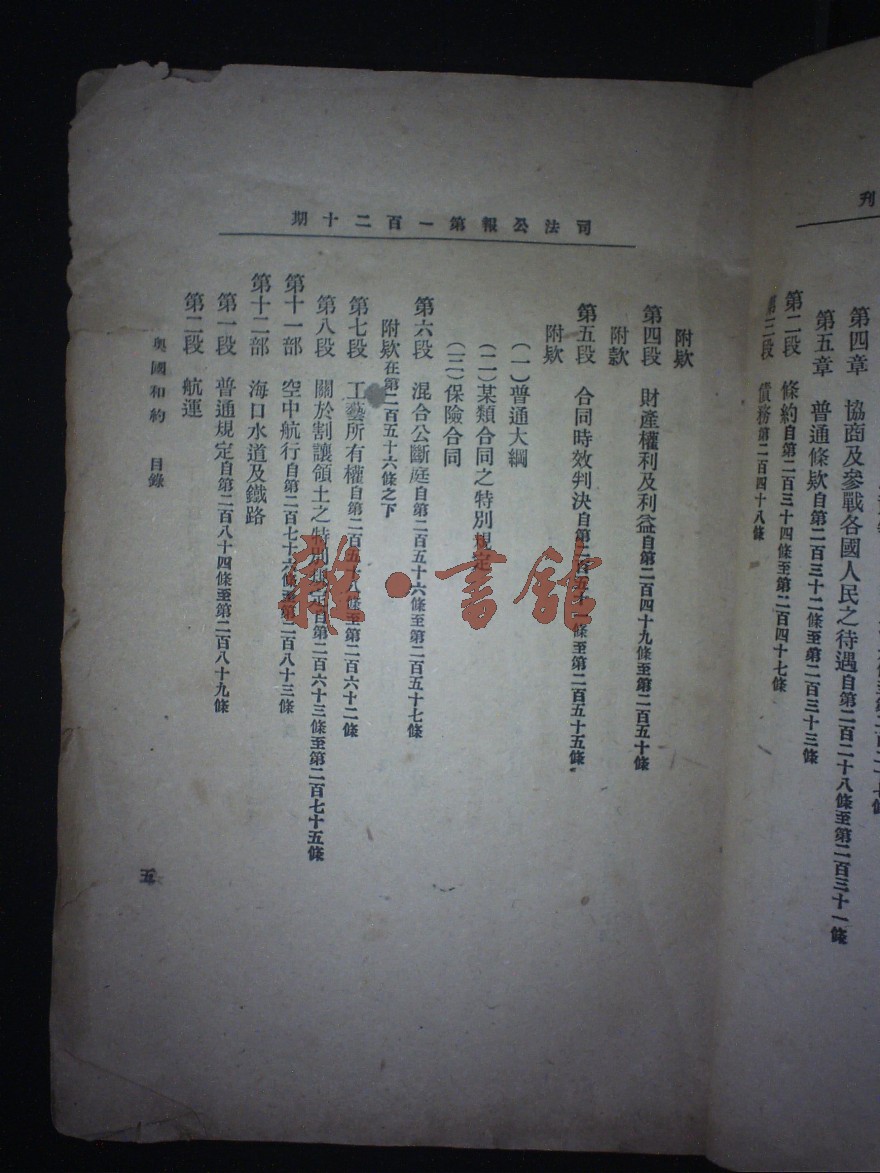 刊
第四章　協商及參戰各國人民之待遇自第二百二十八條至第二百三十一條
第五章　普通條欵自第二百三十二條至第二百三十三條
第二段　條約自第二百三十四條至第二百四十七條
第三段　債務第二百四十八條
司法公報第一百二十期
附欵
第四段　財產權利及利益自第二百四十九條至第二百五十條
附款
第五段　合同時效判決自第二百五十一條至第二百五十五條
附欵
（一）普通大綱
（二）某類合同之特別規定
（三）保險合同
第六段　混合公斷庭自第二百五十六條至第二百五十七條
附欵在第二百五十六條之下
第七段　工藝所有權自第二百五十八條至第二百六十二條
第八段　關於割讓領土之特別規定自第二百六十三條至第二百七十五條
第十一部　空中航行自第二百七十六條至第二百八十三條
第十二部　海口水道及鐵路
第一段　普通規定自第二百八十四條至第二百八十九條
第二段　航運
奧國和約　目錄
五
雜·書館